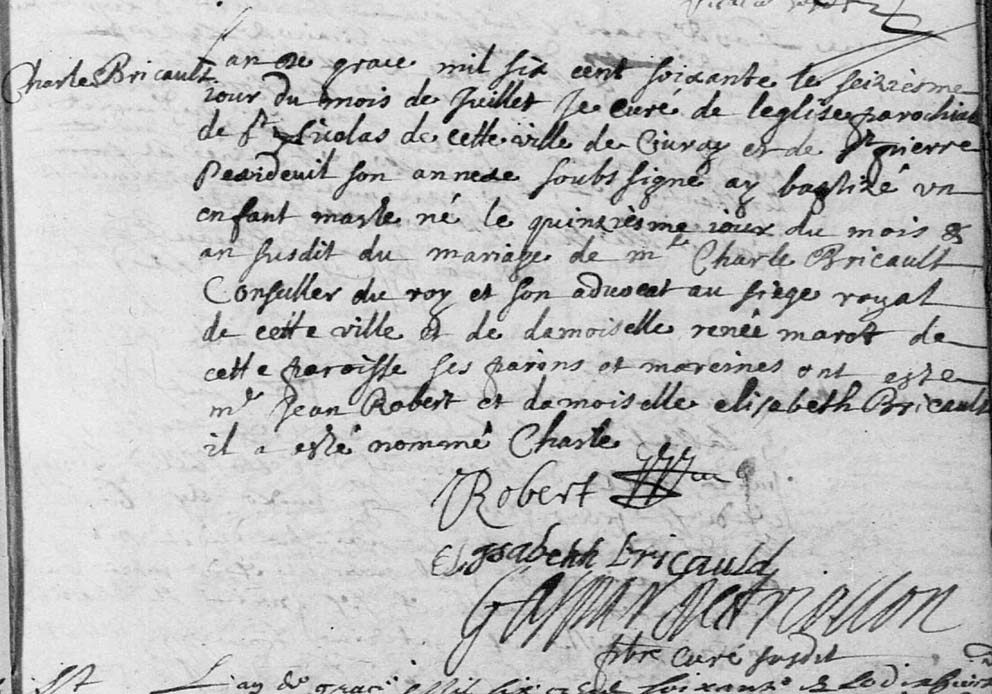 Charle Bricault
L'an de grace mil six cent soixante le seiziesme
iour du mois de Juillet Je curé de leglise parochial
de St Nicolas de cette ville de Ciuray et de St pierre
son annexe soubs signé ay baptizé vn
enfant masle né le quinziesme iour du mois &
an susdit du mariage de mr Charle Bricault
Consuller du roy et son aduocat au siege royal
de cette ville et de damoiselle renée marot de
cette paroisse ses parins et mareines ont este
mr Jean Robert et damoiselle elisabeth Bricault
il a esté nommé Charle
Robert
Elysabehh Bricauld
Gaspar
pbre curé susdit
L'an de grace mil six cent soixante